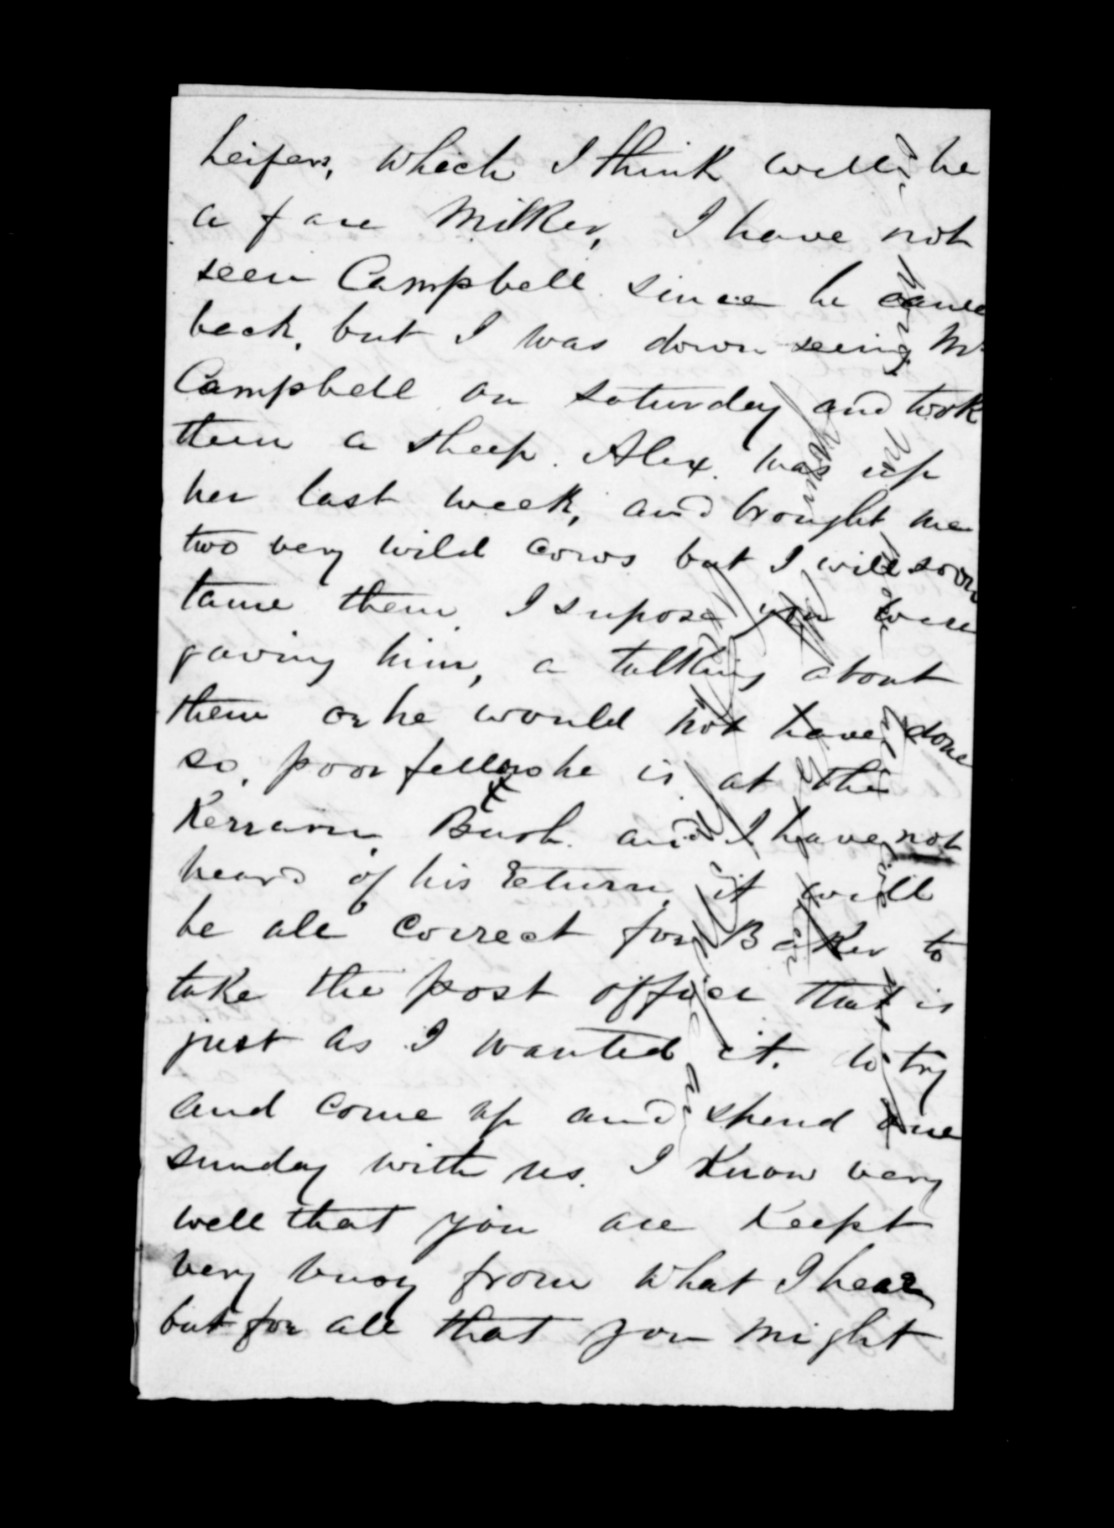 heifers, which I think will be
a fare Milker, I have not
seen Campbell since he came
back, but I was down seeing Mr
Campbell on saturday and took
them a sheep. Alex. was up
her last week, and brought me
two very wild cows but I will soon
tame them. I supose you were
gaving him, a talking about
them or he would not have done
so, poor fellow he is at the
Bush. and I have not
heard of his return, it will
be all correct for Baker to
take the post office that is
just as I wanted it. do try
and come up and spend one
sunday with us. I Know very
well that you are Keept
very buoy from what I hear
but for all that you might